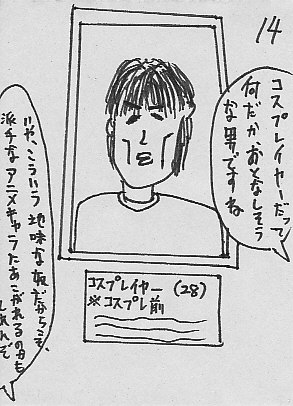 14
コスプレイヤーだって
何だかおとなしそう
な男ですね
いや、こういう地味な奴だからこそ、
派手なアニメキャラにあこがれるのかも
しれんぞ
コスプレイヤー (28)
※コスプレ前